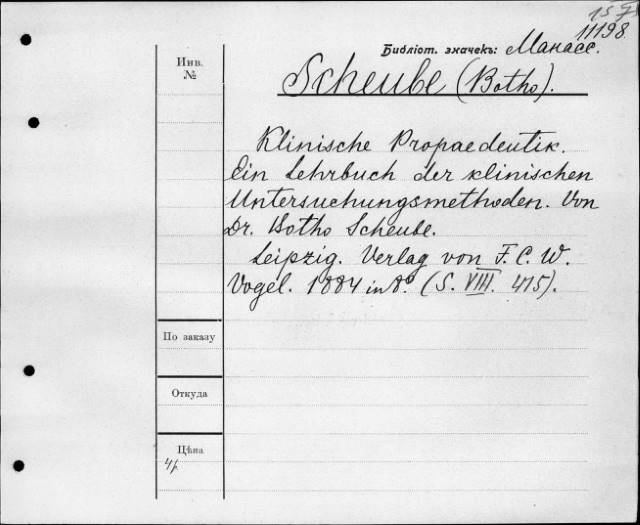 11198.
Библіот. значекъ: Манасс.
Инв.
№
Scheube (Botho).
Klinische Propaedeutik.
Ein Lehrbuch der klinischen
Untersuchungsmethoden. Von
Dr. Botho Scheube.
Leipzig. Verlag von F. C. W.
Vogel. 1884 in 8° (S. VIII. 415).
По заказу
Откуда
Цѣна